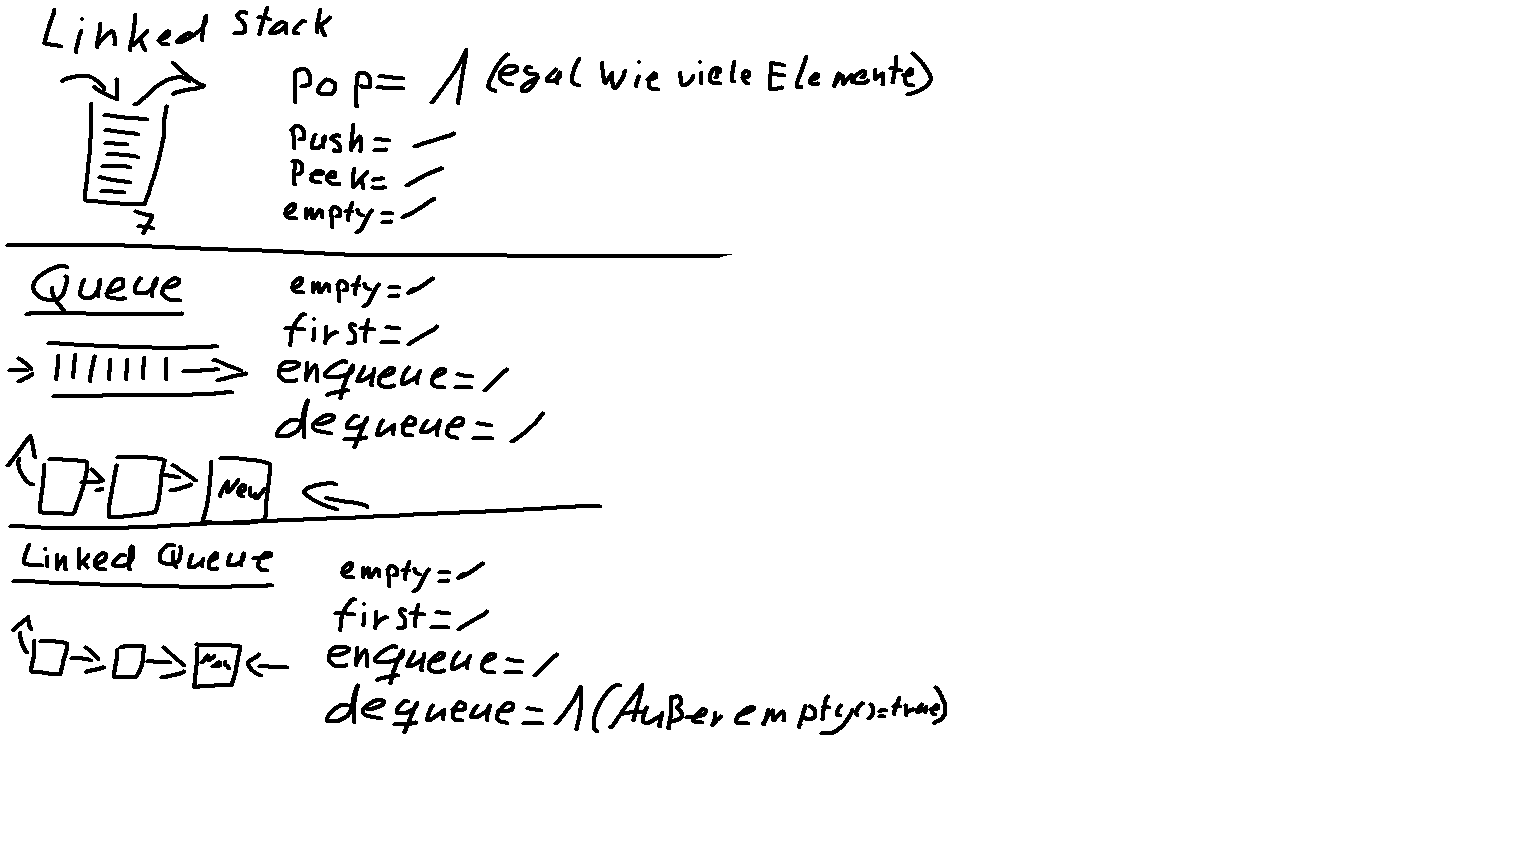 Linked Stack
pop= 1 (egal wie viele Elemente)
push= /
Peek= /
empty= /
7
Queue
empty= /
first= /
enqueue= /
dequeue= /
New
Linked Queue
empty= /
first= /
enqueue= /
New
dequeue= 1 (Außer empty()=true)